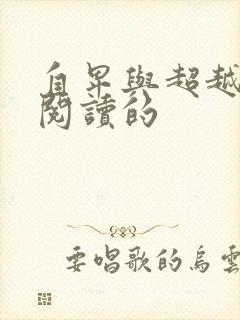 自卑與超越
閱讀的
要唱歌的烏雲